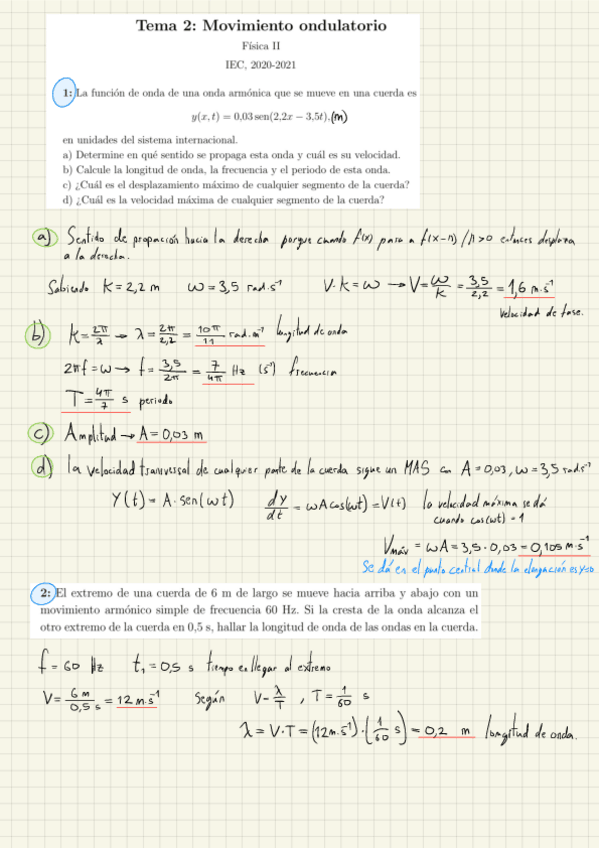 Tema 2: Movimiento ondulatorio
Física II
IEC, 2020-2021
1: La función de onda de una onda armónica que se mueve en una cuerda es
y(x, t) = 0,03 sen(2,2x − 3,5t),(m)
en unidades del sistema internacional.
a) Determine en qué sentido se propaga esta onda y cuál es su velocidad.
b) Calcule la longitud de onda, la frecuencia y el periodo de esta onda.
c) ¿Cuál es el desplazamiento máximo de cualquier segmento de la cuerda?
d) ¿Cuál es la velocidad máxima de cualquier segmento de la cuerda?
a) Sentido de propación hacia la derecha porque cuando f(x) pasa a f(x-n) / n>0 entonces desplaza
a la derecha.
Sabiendo K = 2,2 m ω = 3,5 rad·s⁻¹ V·k = ω → V = ω/k = 3,5/2,2 = 1,6 m·s⁻¹
Velocidad de fase.
b) K = 2π/λ → λ = 2π/2,2 = 10π/11 rad·m⁻¹ longitud de onda
2πf = ω → f = 3,5/2π = 7/4π Hz (s⁻¹) frecuencia
T = 4π/7 s periodo
c) Amplitud → A = 0,03 m
d) la velocidad transversal de cualquier parte de la cuerda sigue un MAS con A = 0,03, ω = 3,5 rad·s⁻¹
Y(t) = A·sen(ωt) dy/dt = ωA cos(ωt) = V(t) la velocidad máxima se dá
cuando cos(ωt) = 1
Vmáx = ωA = 3,5·0,03 = 0,105 m·s⁻¹
Se dá en el punto central donde la elongación es y=0.
2: El extremo de una cuerda de 6 m de largo se mueve hacia arriba y abajo con un
movimiento armónico simple de frecuencia 60 Hz. Si la cresta de la onda alcanza el
otro extremo de la cuerda en 0,5 s, hallar la longitud de onda de las ondas en la cuerda.
f = 60 Hz t₁ = 0,5 s tiempo en llegar al extremo
V = 6 m/0,5 s = 12 m·s⁻¹ según V = λ/T , T = 1/60 s
λ = V·T = (12 m·s⁻¹)·(1/60 s) = 0,2 m longitud de onda.